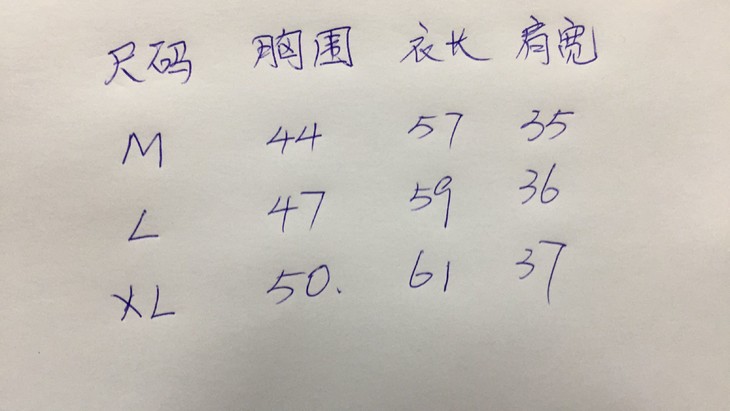 尺码 胸围 衣长 肩宽
M 44 57 35
L 47 59 36
XL 50. 61 37